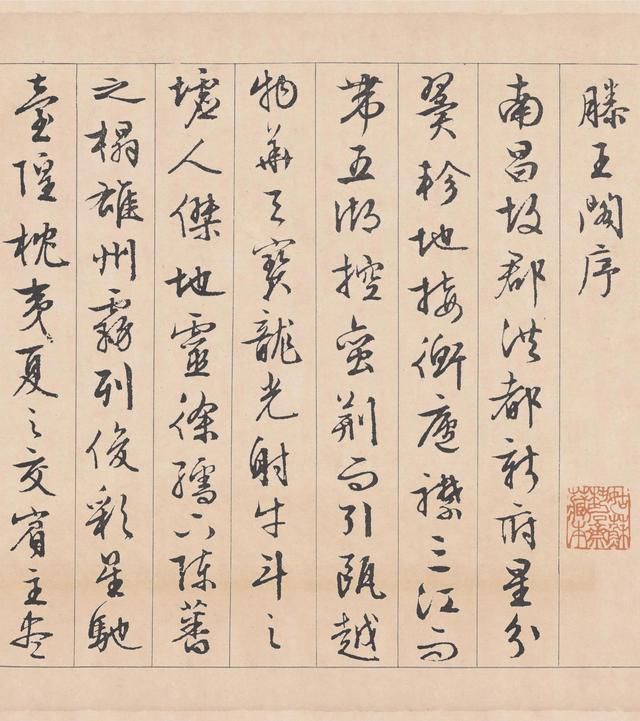 滕王閣序
南昌故郡洪都新府星分
翼軫地接衡廬襟三江而
帶五湖控蠻荊而引甌越
物華天寶龍光射牛斗之
墟人傑地靈徐孺下陳蕃
之榻雄州霧列俊彩星馳
臺隍枕夷夏之交賓主盡